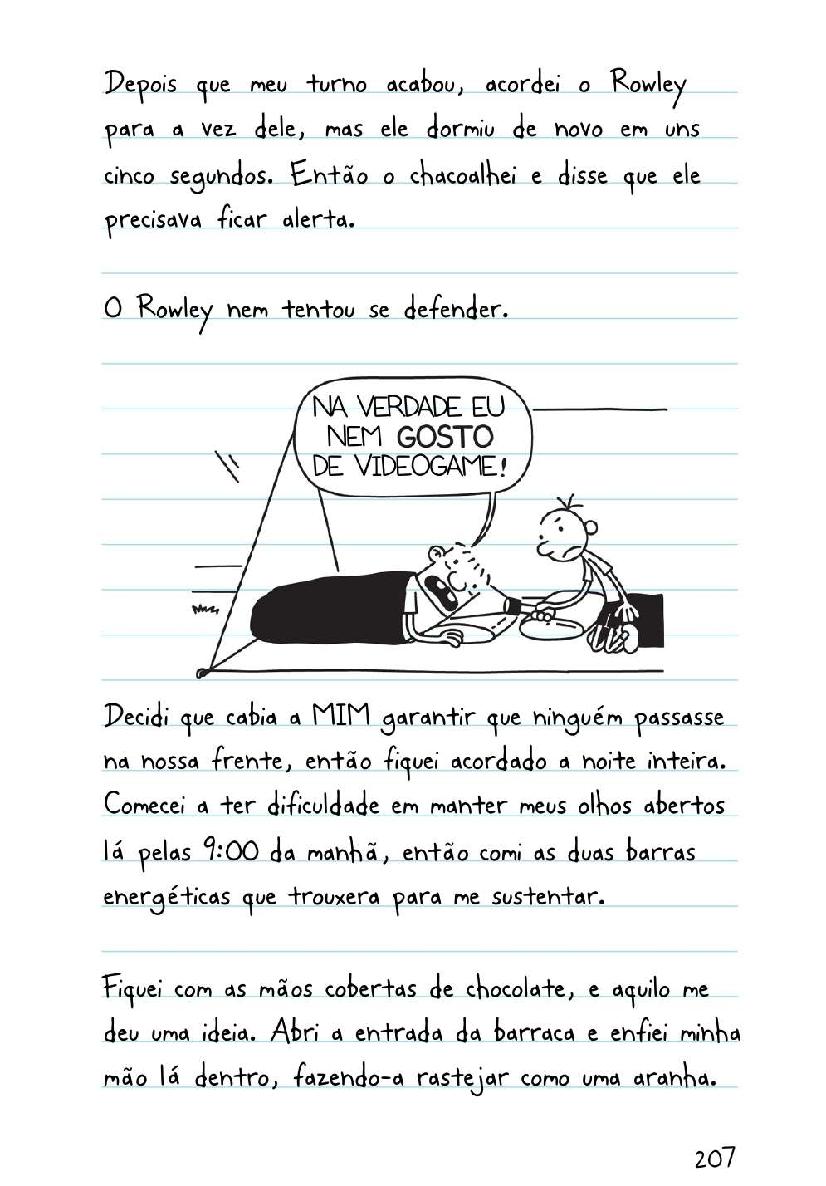 Depois que meu turno acabou, acordei o Rowley
para a vez dele, mas ele dormiu de novo em uns
cinco segundos. Então o chacoalhei e disse que ele
precisava ficar alerta.
O Rowley nem tentou se defender.
NA VERDADE EU
NEM GOSTO
DE VIDEOGAME!
Decidi que cabia a MIM garantir que ninguém passasse
na nossa frente, então fiquei acordado a noite inteira.
Comecei a ter dificuldade em manter meus olhos abertos
lá pelas 9:00 da manhã, então comi as duas barras
energéticas que trouxera para me sustentar.
Fiquei com as mãos cobertas de chocolate, e aquilo me
deu uma ideia. Abri a entrada da barraca e enfiei minha
mão lá dentro, fazendo-a rastejar como uma aranha.
207